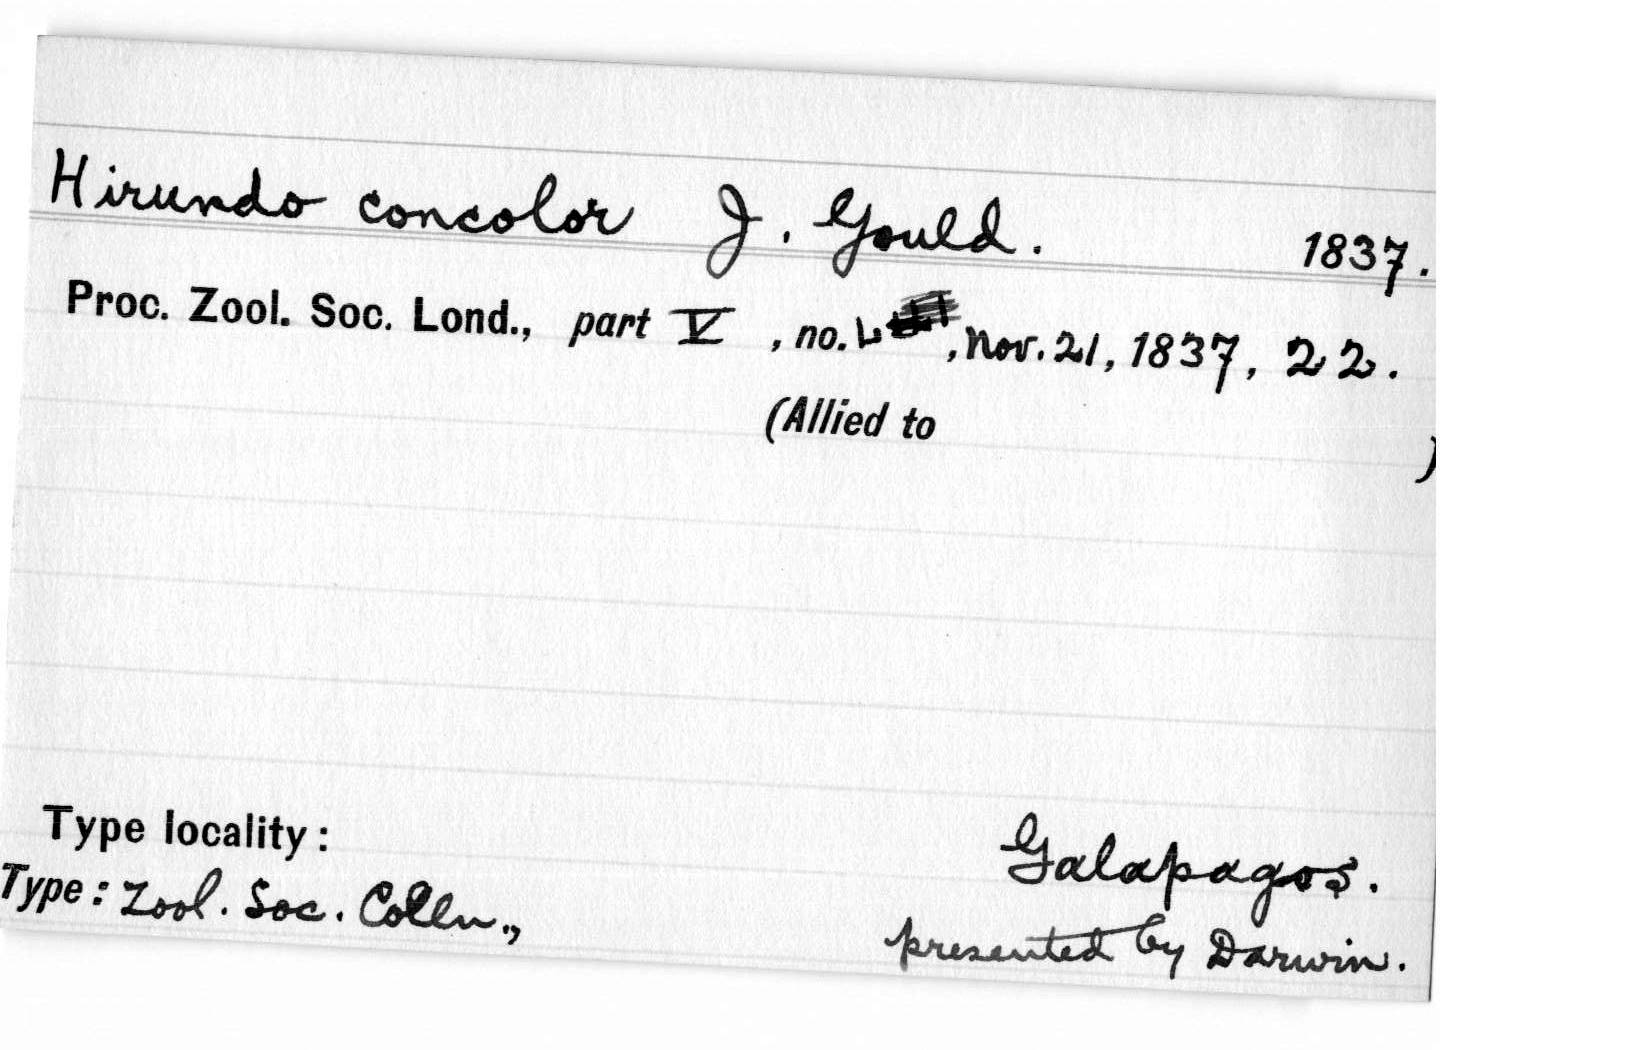 Hirundo concolor J. Gould. 1837.
Proc. Zool. Soc. Lond., part V, no. , Nov. 21, 1837, 22.
(Allied to )
Type locality: Galapagos.
Type: Zool. Soc. Colln., presented by Darwin.